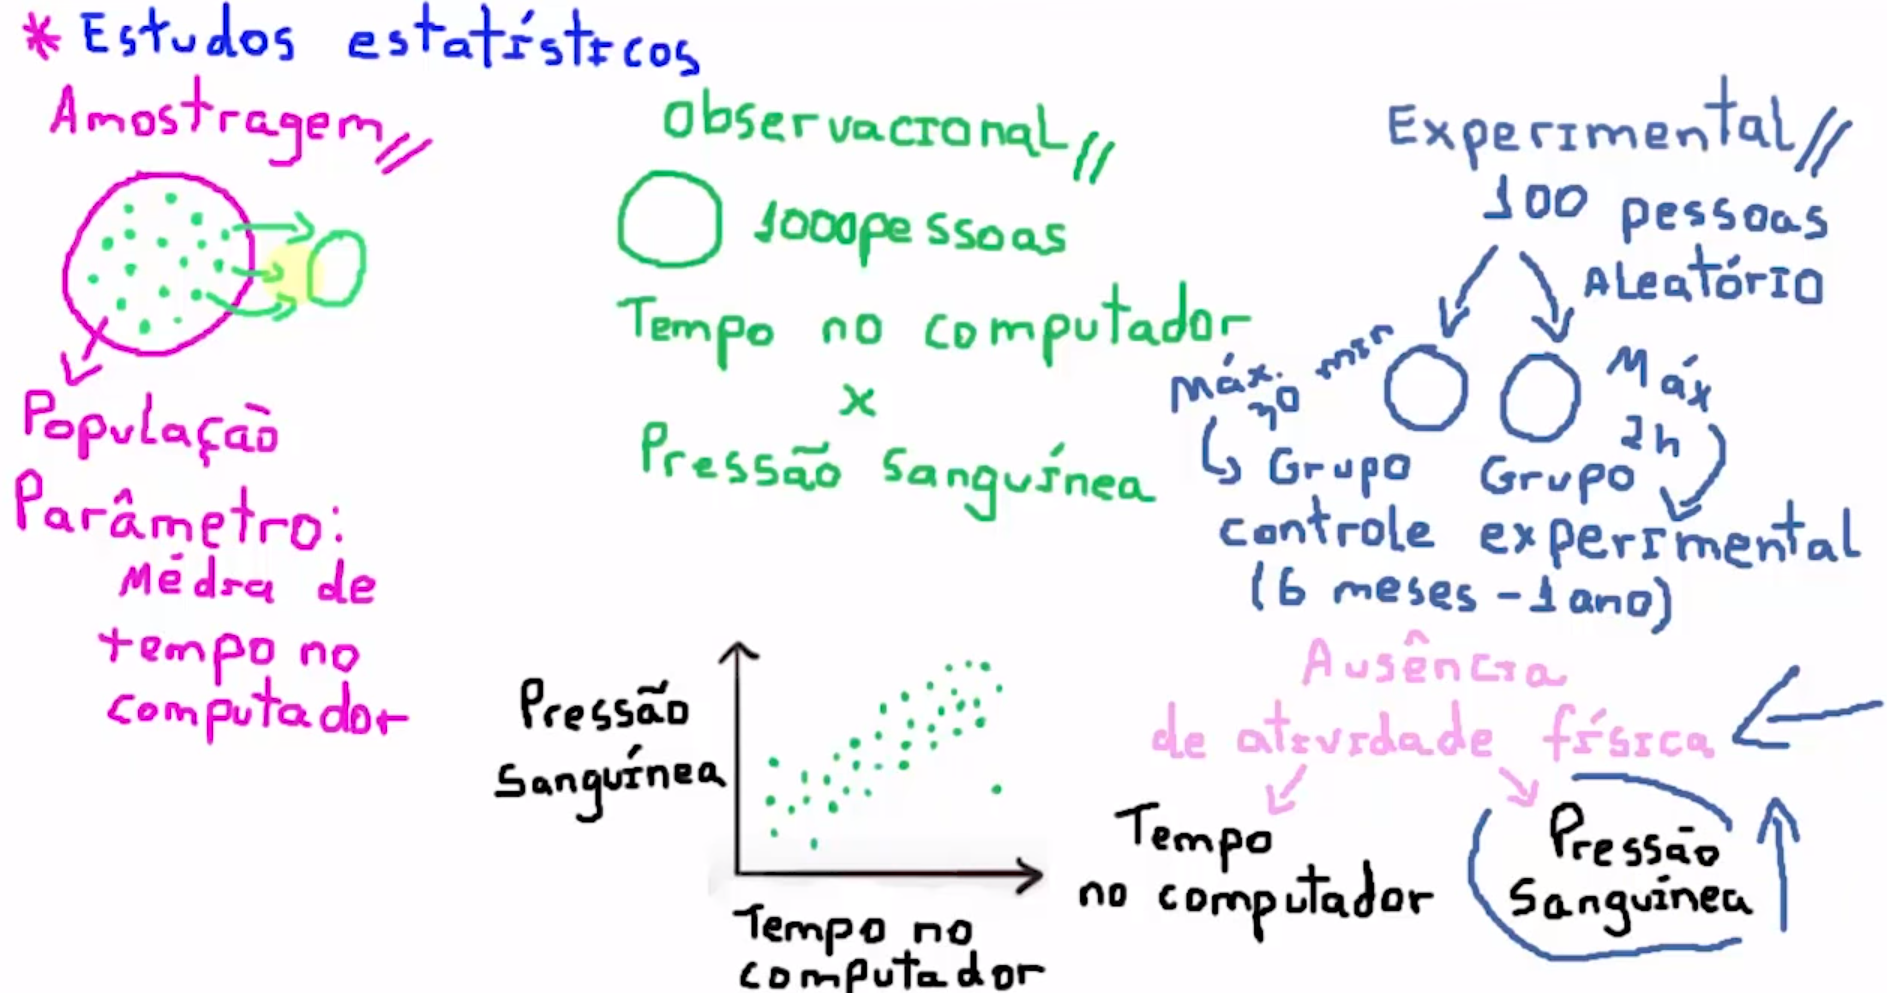 * Estudos estatísticos
Amostragem
População
Parâmetro:
Média de
tempo no
computador
Observacional
1000 pessoas
Tempo no computador
x
Pressão sanguínea
Pressão
Sanguínea
Tempo no
computador
Experimental
100 pessoas
Aleatório
máx. 30 min
Máx
2h
Grupo Grupo
controle experimental
(6 meses - 1 ano)
Ausência
de atividade física
Tempo
no computador
Pressão
Sanguínea